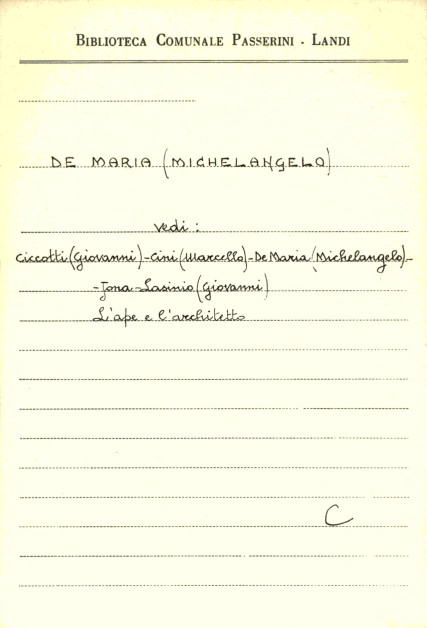 BIBLIOTECA COMUNALE PASSERINI - LANDI
DE MARIA (MICHELANGELO)
vedi:
Ciccotti (Giovanni) - Cini (Marcello) - De Maria (Michelangelo) -
- Jona - Lasinio (Giovanni)
L'ape e l'architetto
C